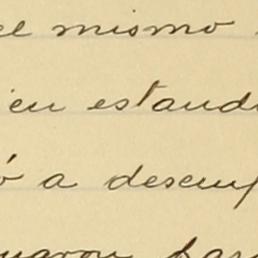 el mismo
ien estand
ó a desemp